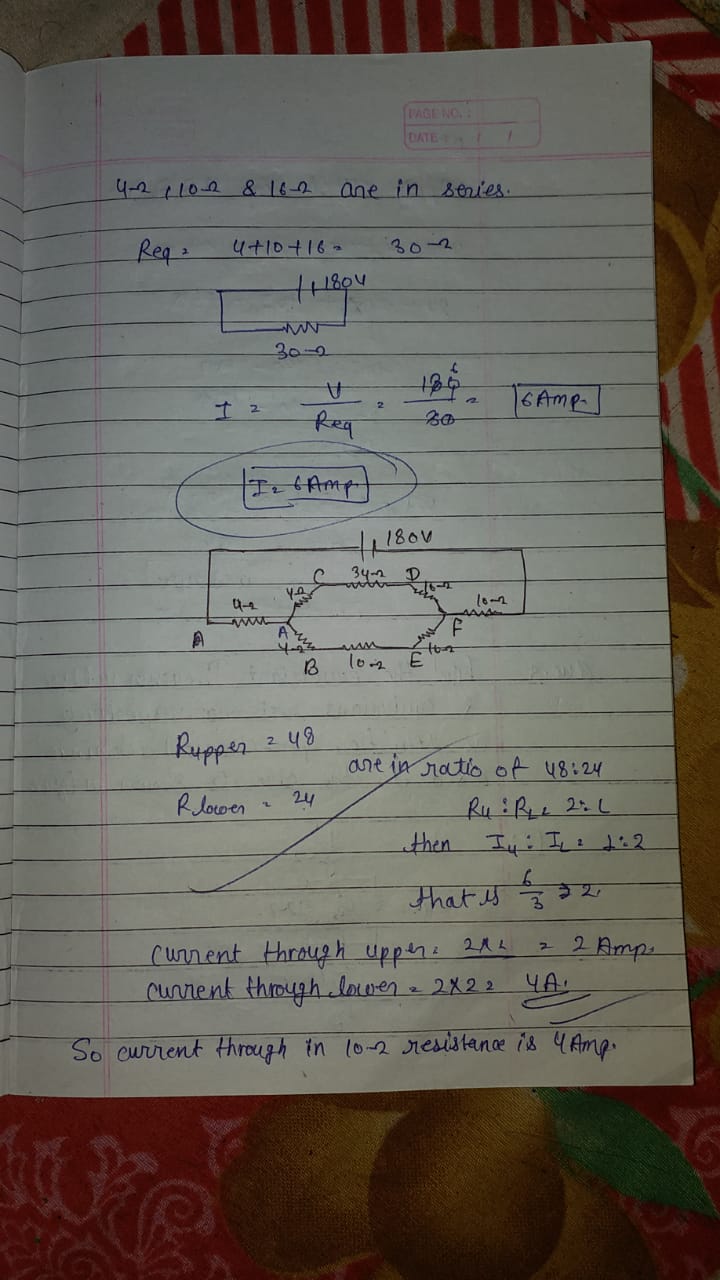 PAGE NO. :
DATE : / /
4Ω, 10Ω & 16Ω are in series.
Req = 4+10+16 = 30Ω
180V
30Ω
I = V/Req = 180/30 = 6 6Amp.
I = 6Amp.
180V
C 34Ω D
4Ω 10Ω
4Ω 10Ω
A A F
4Ω 10Ω
B 10Ω E
Rupper = 48
are in ratio of 48:24
Rlower = 24
Ru : RL = 2:1
then Iu : IL = 1:2
that is 6/3 ⇒ 2.
current through upper = 2×1 = 2 Amp.
current through lower = 2×2 = 4A.
So current through in 10Ω resistance is 4Amp.